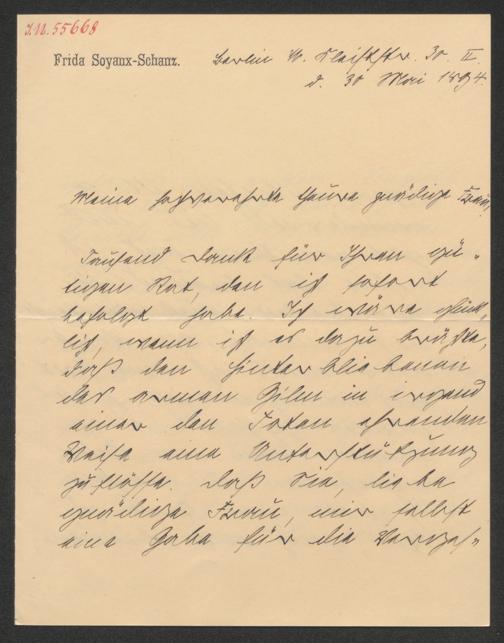 J.N. 55668
Frida Soyaux-Schanz.
Berlin W. Kleiststr. 30. II.
d. 30 Mai 1894.
Meine hochverehrte theure gnädige Frau,
Tausend Dank für Ihren gü-
tigen Rat, den ich sofort
befolgt habe. Ich wäre glück-
lich, wenn ich es dazu brächte,
daß den Hinterbliebenen
des armen Gilm in irgend
einer den Toten ehrenden
Weise eine Unterstützung
zuflösse. Daß Sie, liebe
gnädige Frau, mir selbst
eine Gabe für die